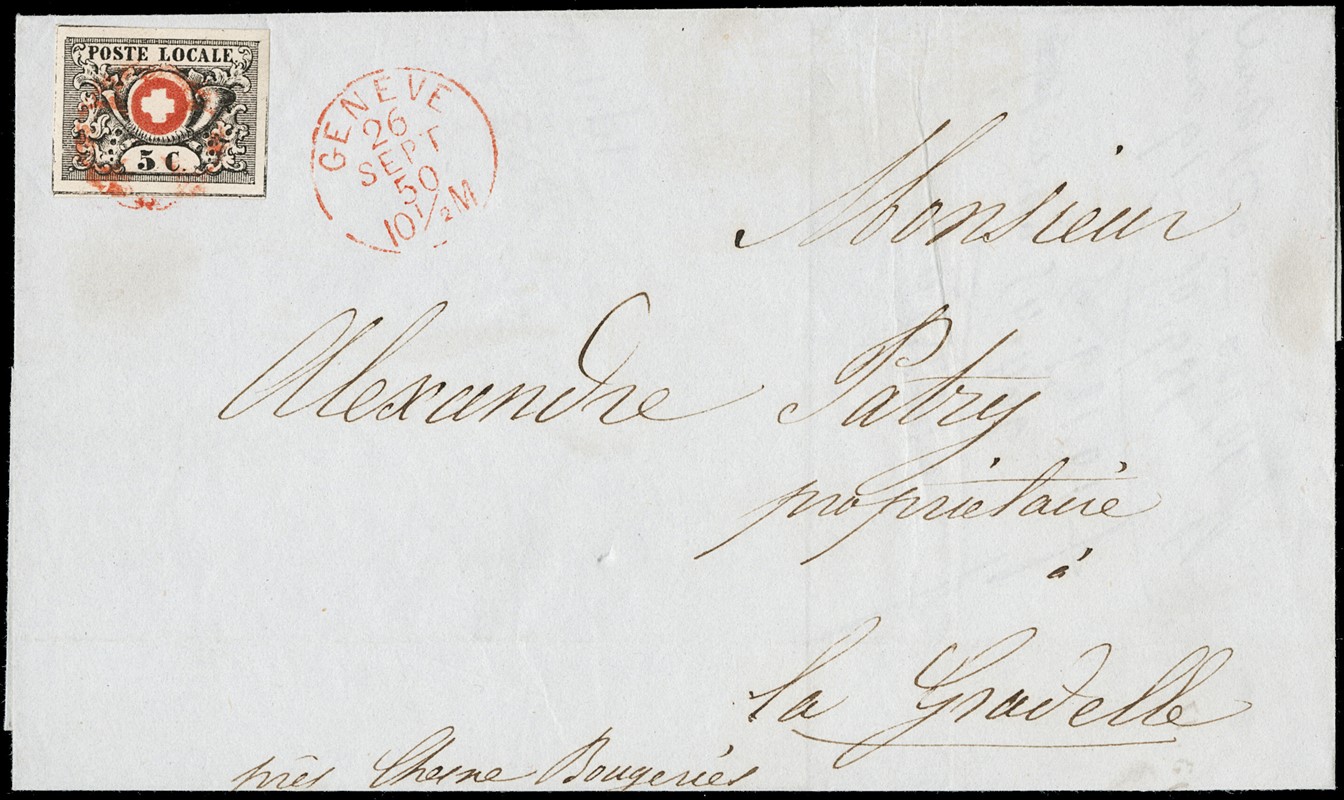 POSTE LOCALE
5 C.
GENEVE
26
SEPT
50
10½M
Monsieur
Alexandre Patry
propriétaire
à
la Gradelle
près Chesne Bougeries